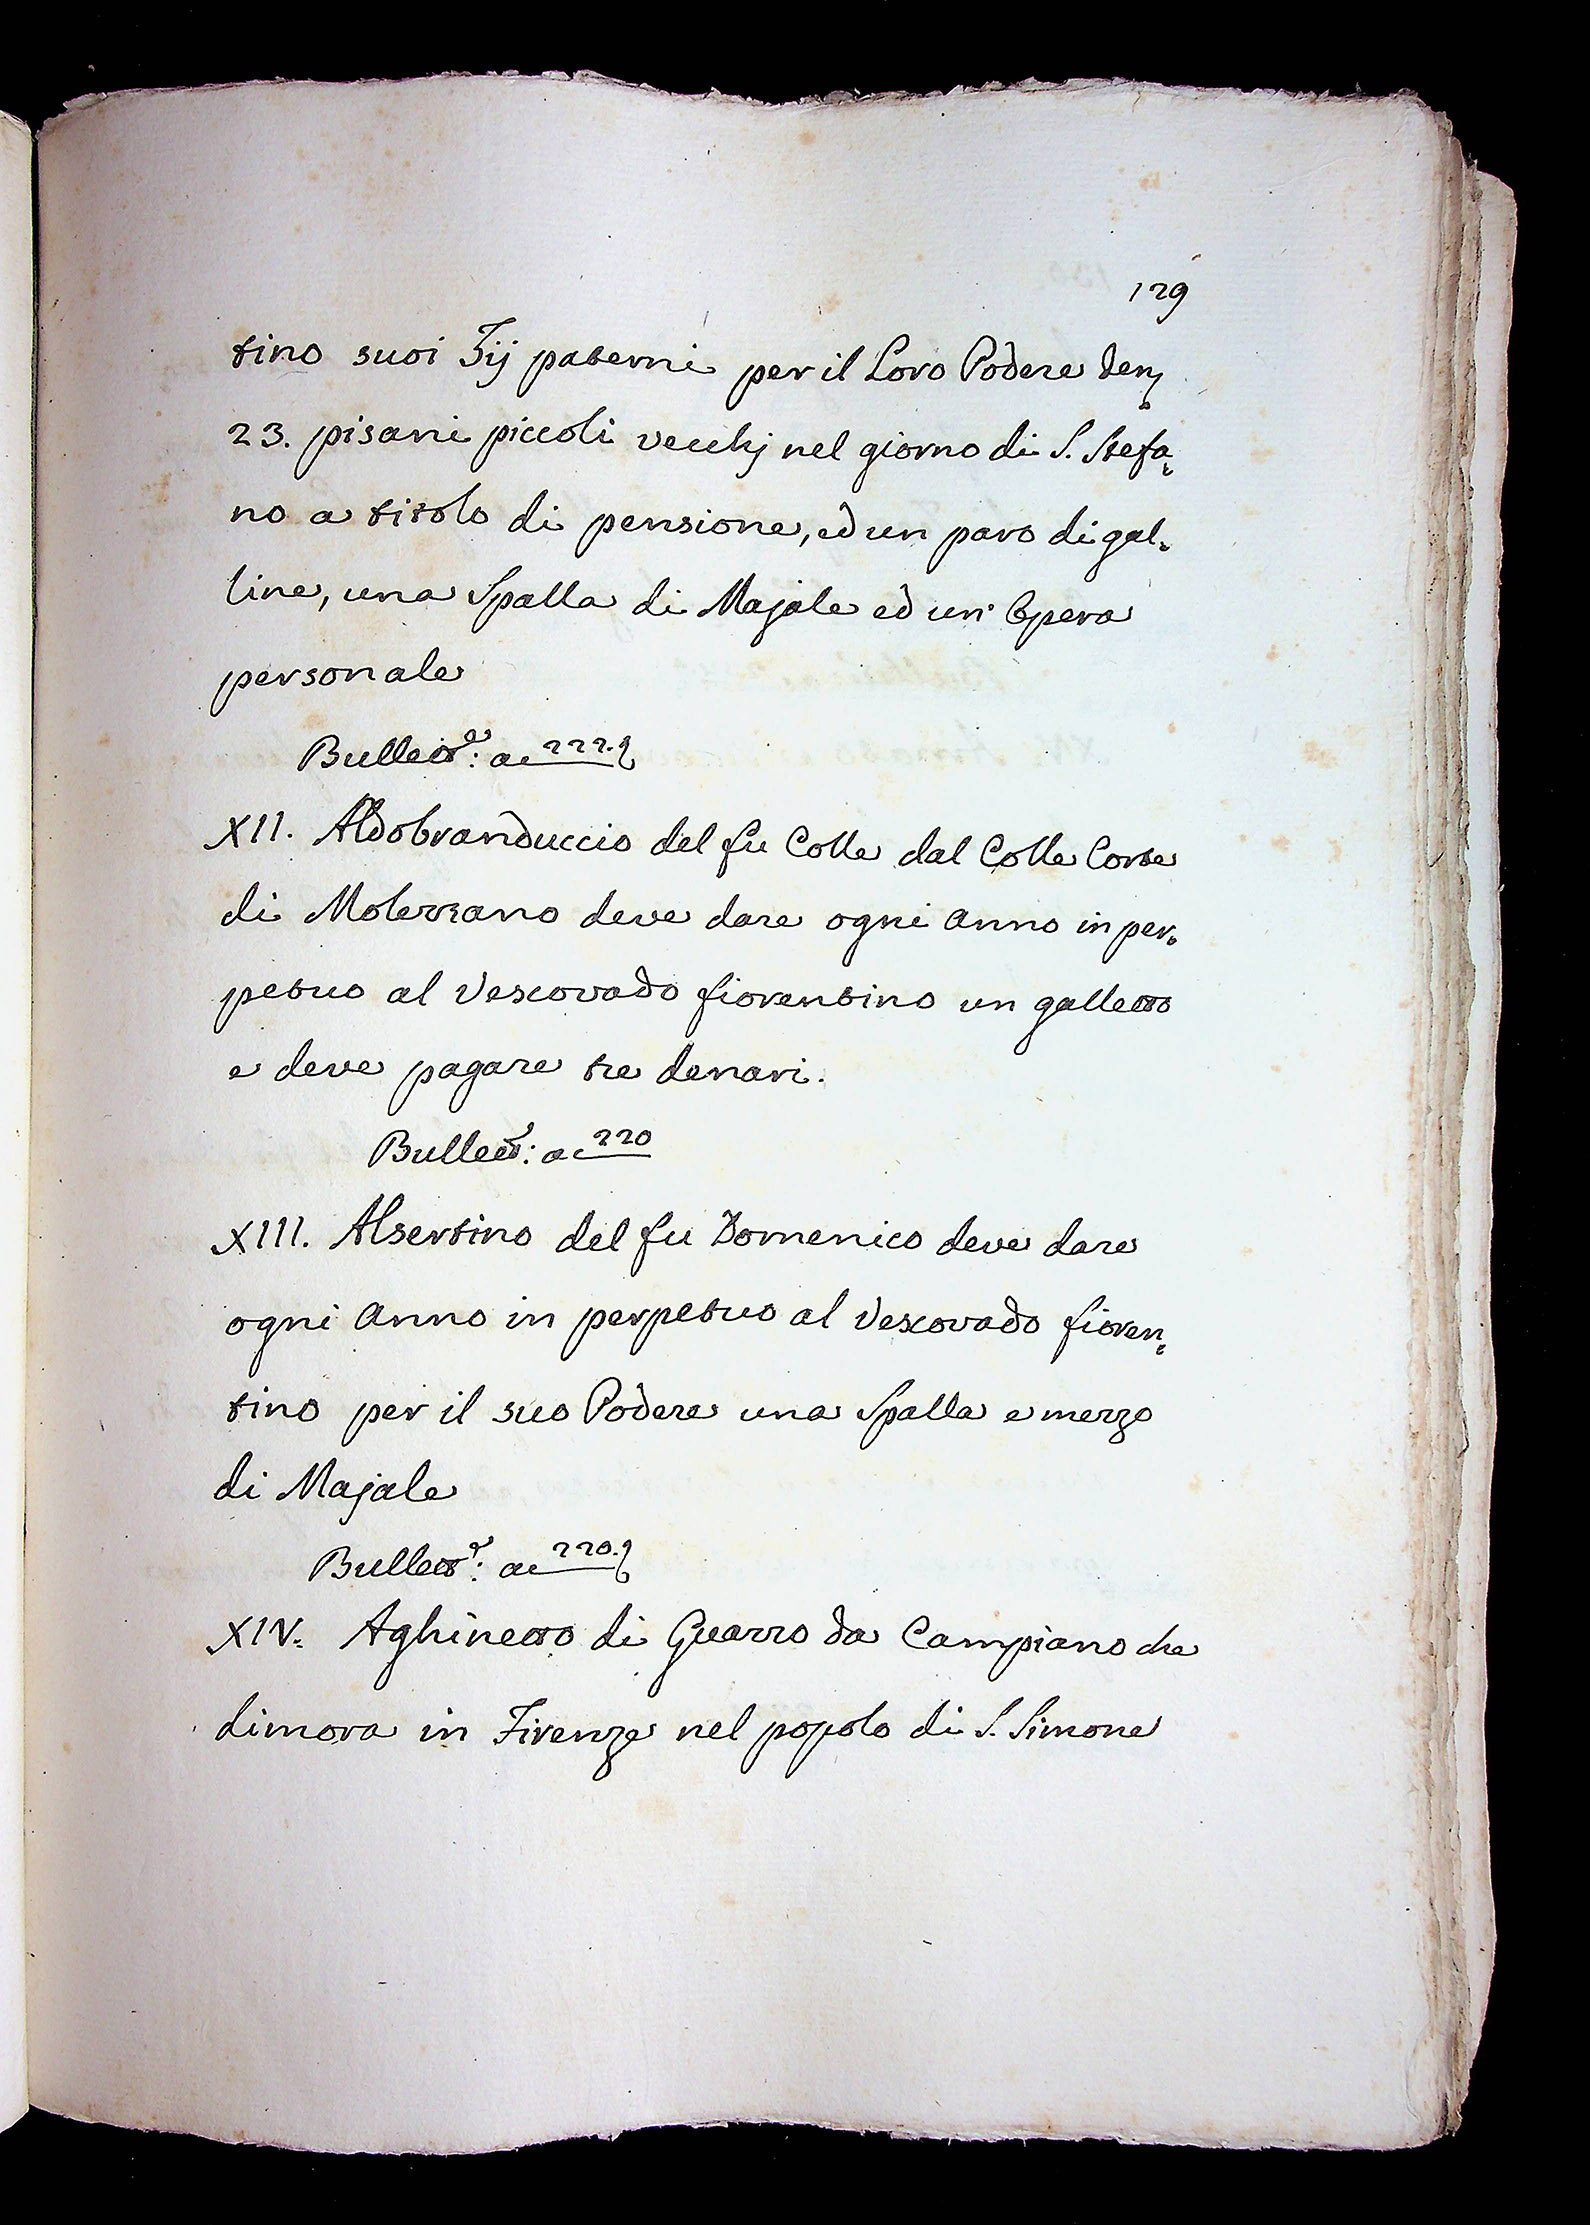 129
tino suoi Zij paterni per il Loro Podere den
23. pisani piccoli vecchj nel giorno di S. Stefa=
no a titolo di pensione, ed un paro di gal=
line, una Spalla di Majale ed un' Opera
personale
Bullett.e: a 222.
XII. Aldobranduccio del fu Colle dal Colle Corte
di Molezzano deve dare ogni Anno in per=
petuo al Vescovado fiorentino un galletto
e deve pagare tre denari.
Bullett.e: a 220
XIII. Alsertino del fu Domenico deve dare
ogni Anno in perpetuo al Vescovado fioren=
tino per il suo Podere una Spalla e mezzo
di Majale
Bullett.e: a 220.
XIV. Aghinetto di Guazzo da Campiano che
dimora in Firenze nel popolo di S. Simone